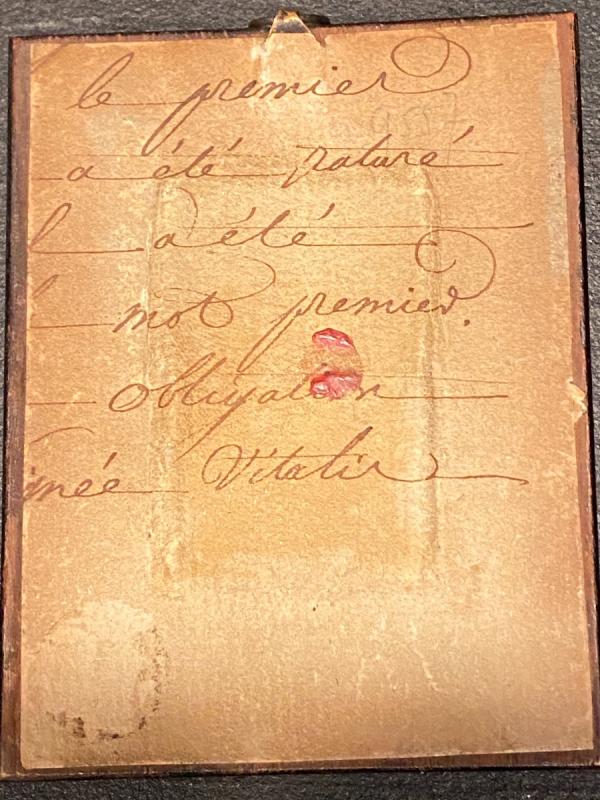 le premier
a été raturé
l a été
mot premier.
obligation
gnée Vitalis